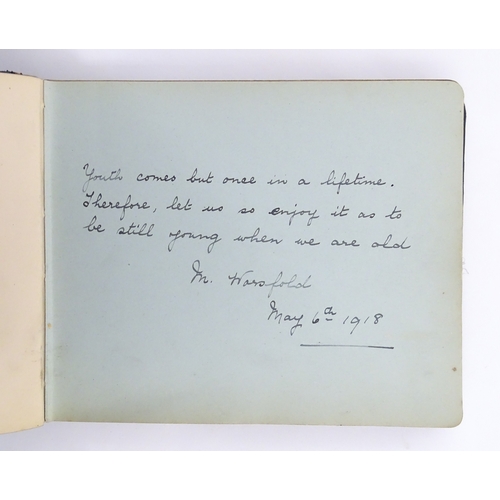 Youth comes but once in a lifetime.
Therefore, let us so enjoy it as to
be still young when we are old
M. Worsfold
May 6th 1918